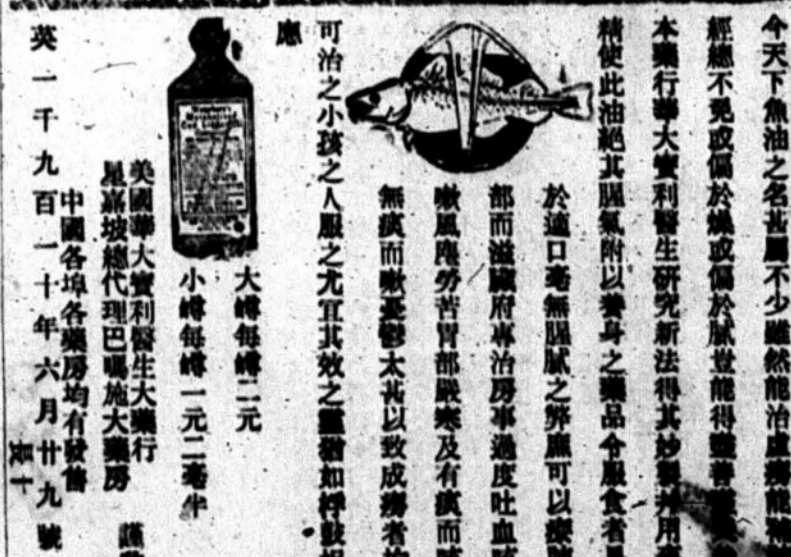 今天下魚油之名甚屬不少雖然能治虛癆能補
經總不免或偏於燥或偏於膩豈能得盡善
本藥行華大寶利醫生研究新法得其妙製幷用
精使此油絕其腥氣附以養身之藥品令服食者
於適口毫無腥膩之弊庶可以療
部而滋臟府專治房事過度吐血
嗽風塵勞苦胃部嚴寒及有痰而
無痰而嗽憂鬱太甚以致成癆者
可治之小孩之人服之尤宜其效之靈猶如桴鼓
應
大罇每罇二元
小罇每罇一元二毫半
美國華大寶利醫生大藥行
星嘉坡總代理巴嗎施大藥房
中國各埠各藥房均有發售
謹
英一千九百一十年六月廿九號